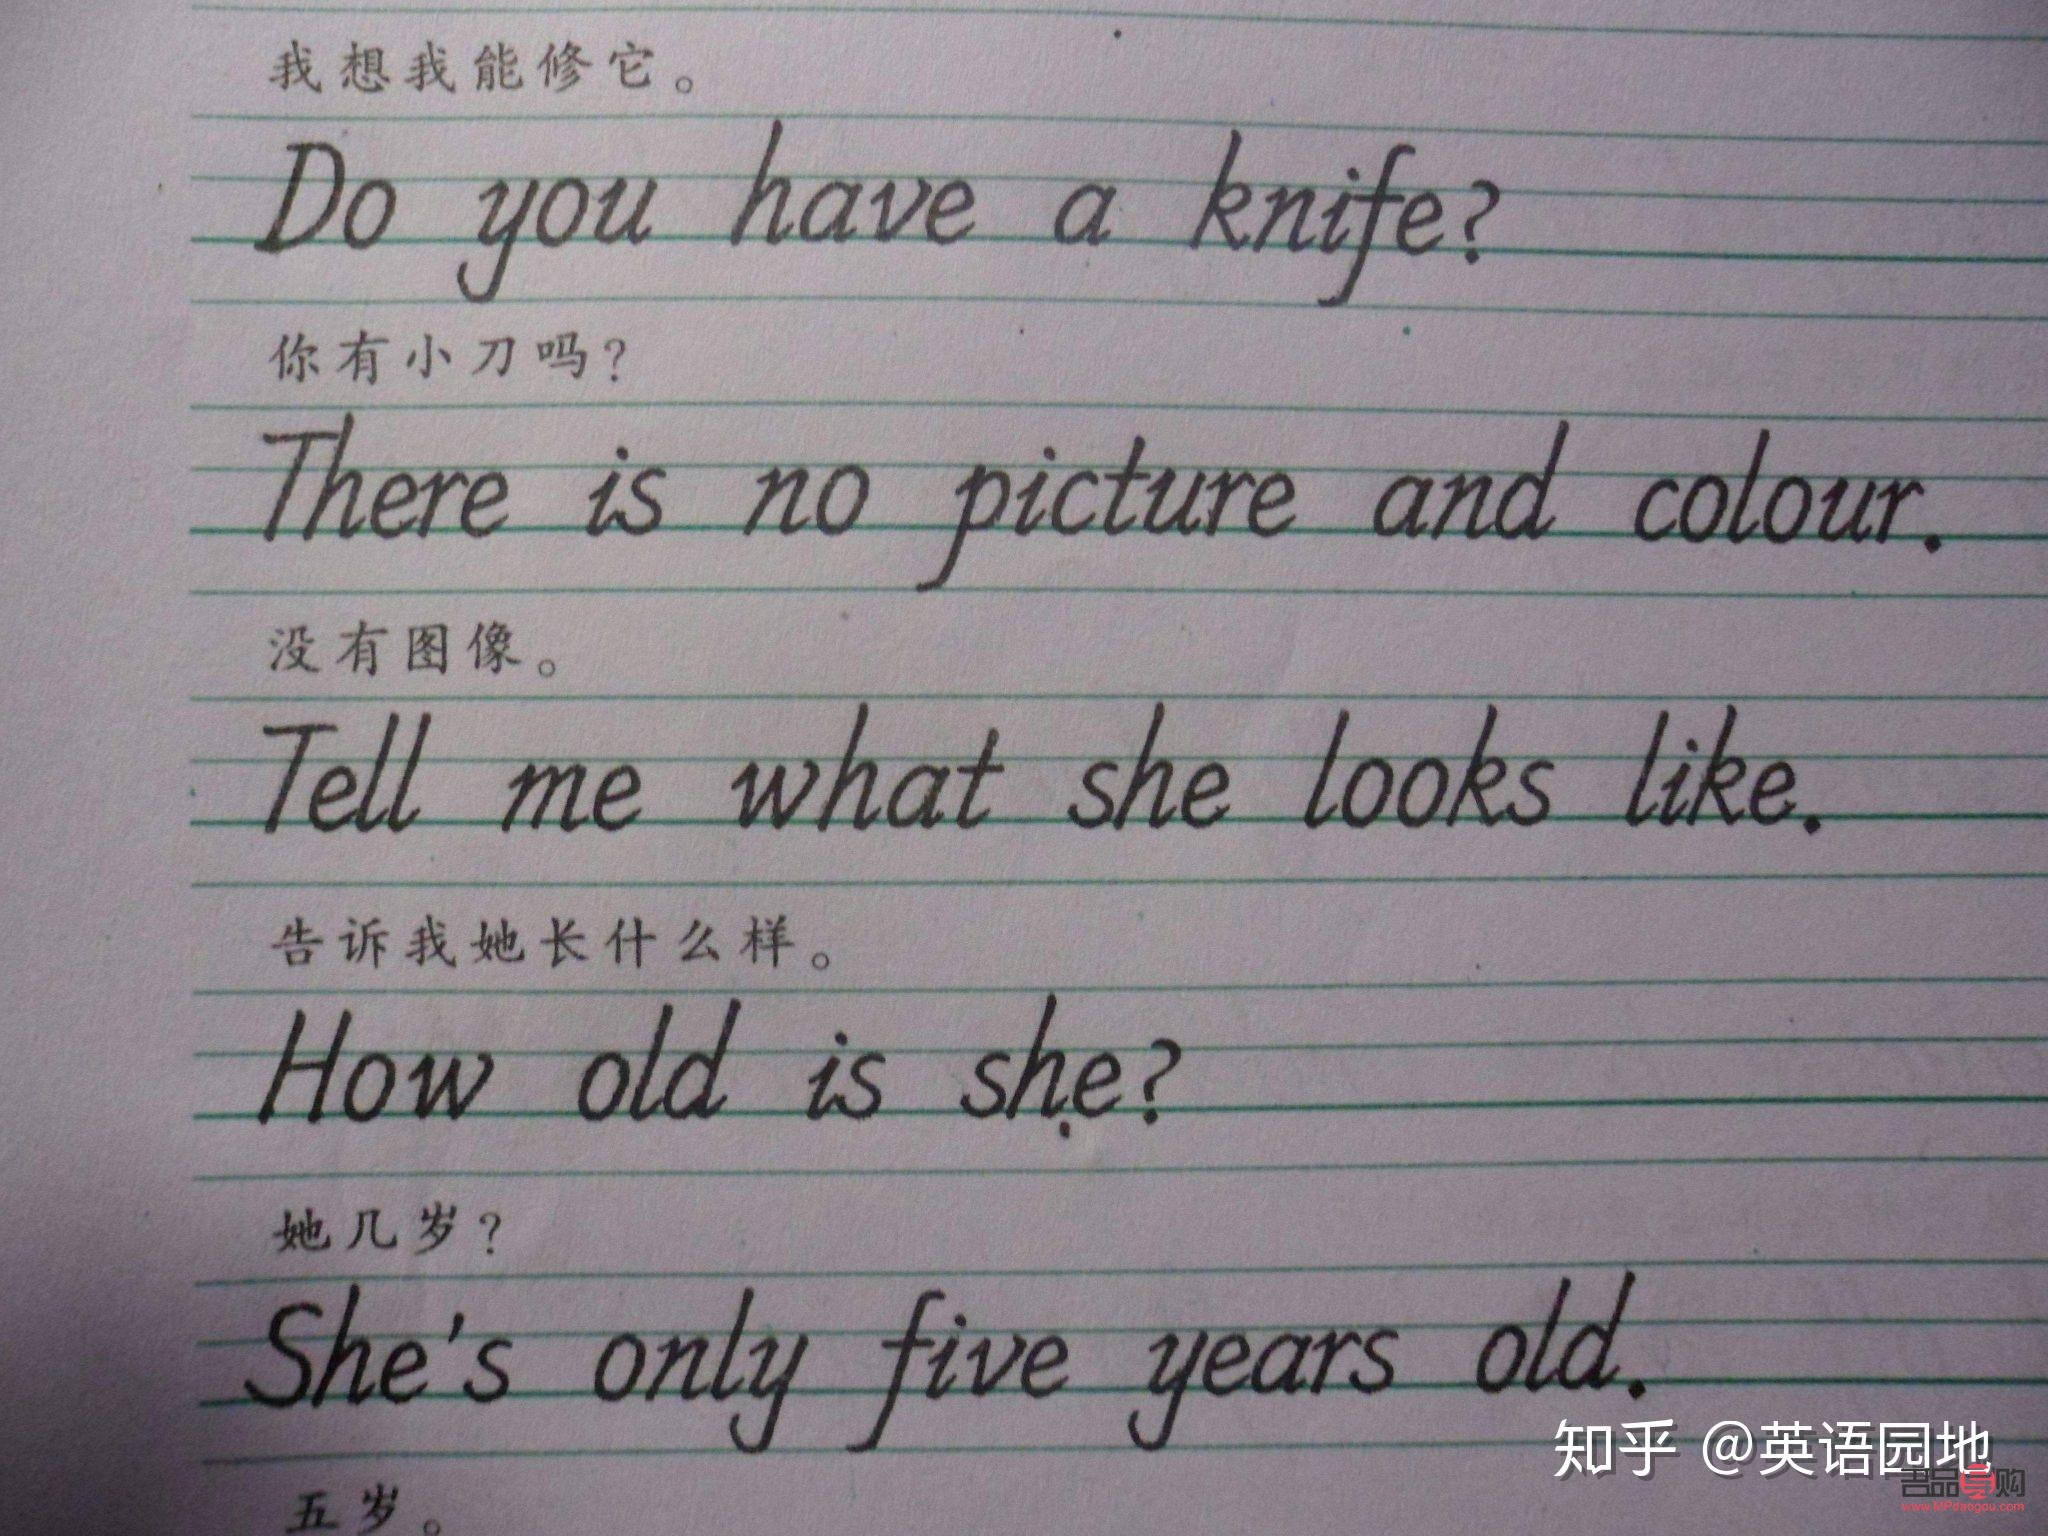 我想我能修它。
Do you have a knife?
你有小刀吗?
There is no picture and colour.
没有图像。
Tell me what she looks like.
告诉我她长什么样。
How old is she?
她几岁?
She's only five years old.
五岁。
知乎 @英语园地
名品导购
www.MPdaogou.com